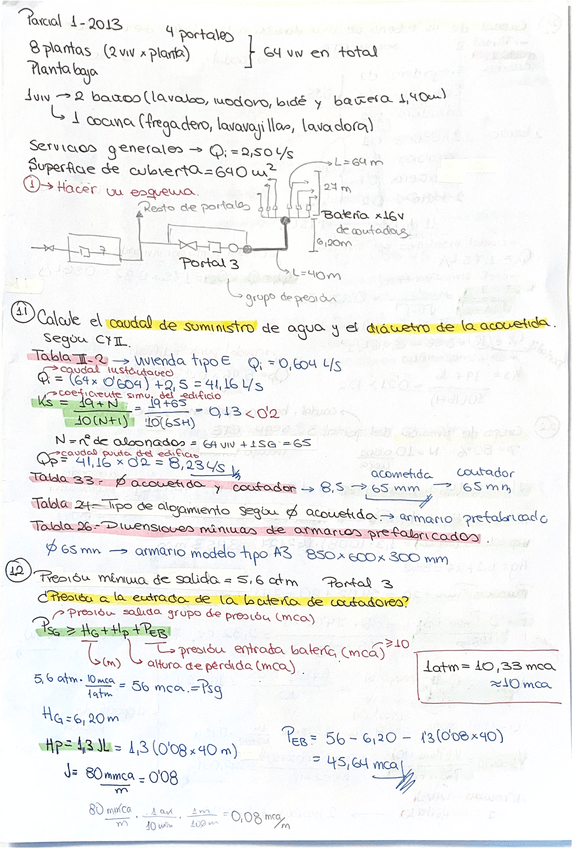 Parcial 1-2013
4 portales
8 plantas (2 viv x planta)
64 viv en total
Planta baja
1 viv → 2 baños (lavabo, inodoro, bidé y bañera 1,40m)
↳ 1 cocina (fregadero, lavavajillas, lavadora)
Servicios generales → Qi = 2,50 L/s
Superficie de cubierta = 640 m²
① → Hacer un esquema.
L = 64 m
27 m
Resto de portales
Batería x16v
de contadores
6,20m
Portal 3
L = 40m
grupo de presión
1.1 Calcule el caudal de suministro de agua y el diámetro de la acometida.
según CYII.
Tabla II-2 → vivienda tipo E Qi = 0,604 L/s
caudal instantáneo
Qi = (64 x 0'604) + 2,5 = 41,16 L/s
coeficiente simu. del edificio
Ks = 19+N / 10(N+1) = 19+65 / 10(65+1) = 0,13 < 0'2
N = nº de abonados = 64 viv + 1SG = 65
caudal punta del edificio
Qp = 41,16 x 0'2 = 8,23 L/s
acometida contador
Tabla 33.- Ø acometida y contador → 8,5 → 65 mm → 65 mm
Tabla 24.- Tipo de alojamiento según Ø acometida. → armario prefabricado
Tabla 26.- Dimensiones mínimas de armarios prefabricados.
Ø 65 mm → armario modelo tipo A3 850 x 600 x 300 mm
1.2 Presión mínima de salida = 5,6 atm Portal 3
¿Presión a la entrada de la batería de contadores?
Presión salida grupo de presión (mca)
PSG ≥ HG + Hp + PEB
presión entrada batería (mca) ≥10
(m) altura de pérdida (mca)
1atm = 10,33 mca
≈ 10 mca
5,6 atm · 10mca / 1atm = 56 mca = Psg
HG = 6,20 m
Hp = 1,3 JL = 1,3 (0'08 x 40 m)
PEB = 56 - 6,20 - 1'3 (0'08 x 40)
= 45,64 mca
J = 80 mmca / m = 0'08
80 mmca / m · 1 cm / 10 mm · 1 m / 100 m = 0,08 mca/m